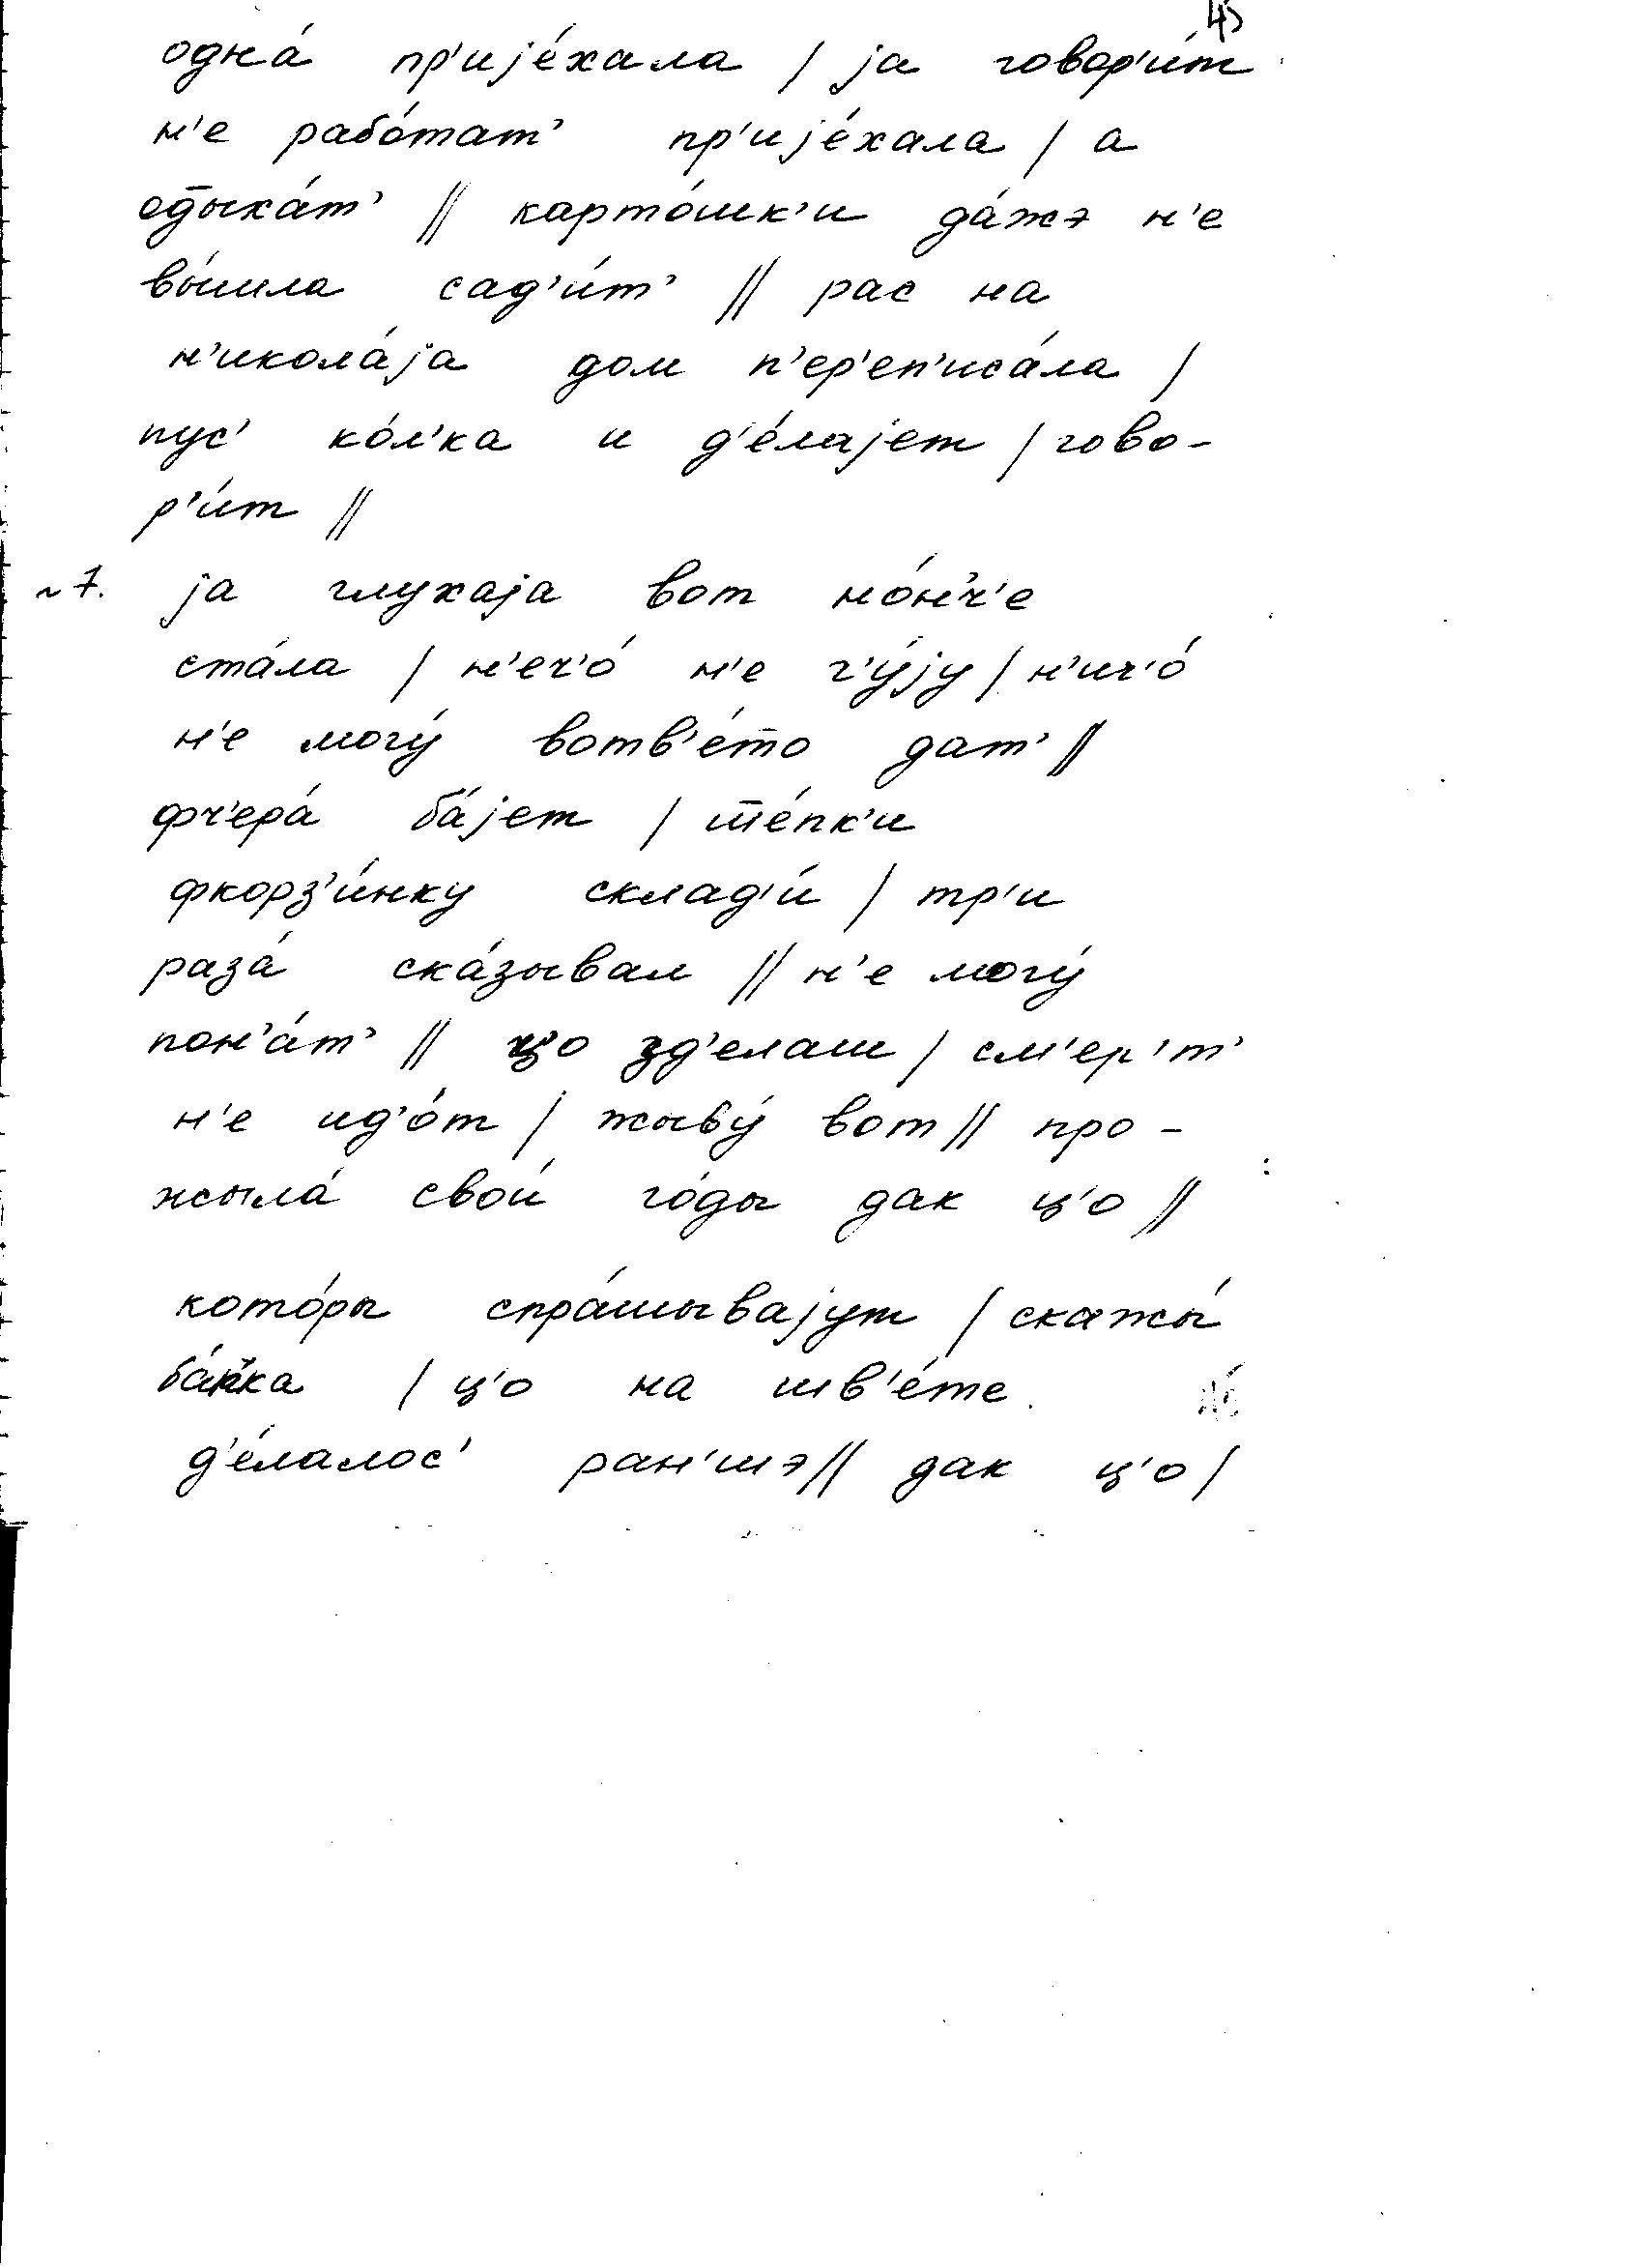 45
одна́ пр'ије́хала / ја говор'и́т
н'е рабо́тат' пр'ије́хала / а
од̅ыха́т' // карто́шк'и да́жэ н'е
вы́шла сад'и́т' // рас на
н'икола́ја дом п'ер'еп'иса́ла /
пус' ко́л'ка и д'е́лајет / гово-
р'и́т //
~7. ја глухаја вот но́н'ч'е
ста́ла / н'еч'о́ н'е ч'у́ју / н'ич'о́
н'е могу́ вотв'е́т̅о дат' //
фч'ера́ ба́јет / т̅е́пк'и
фкорз'и́нку склад'и́ / тр'и
раза́ ска́зывал // н'е могу́
пон'а́т' // ц'о зд'елаш / см'ер'т'
н'е ид'о́т / жыву́ вот // про-
жыла́ свои́ го́ды дак ц'о //
кото́ры спра́шывајут / скажы́
ба́пка / ц'о на шв'е́те
д'е́лалос' ран'шэ // дак ц'о /